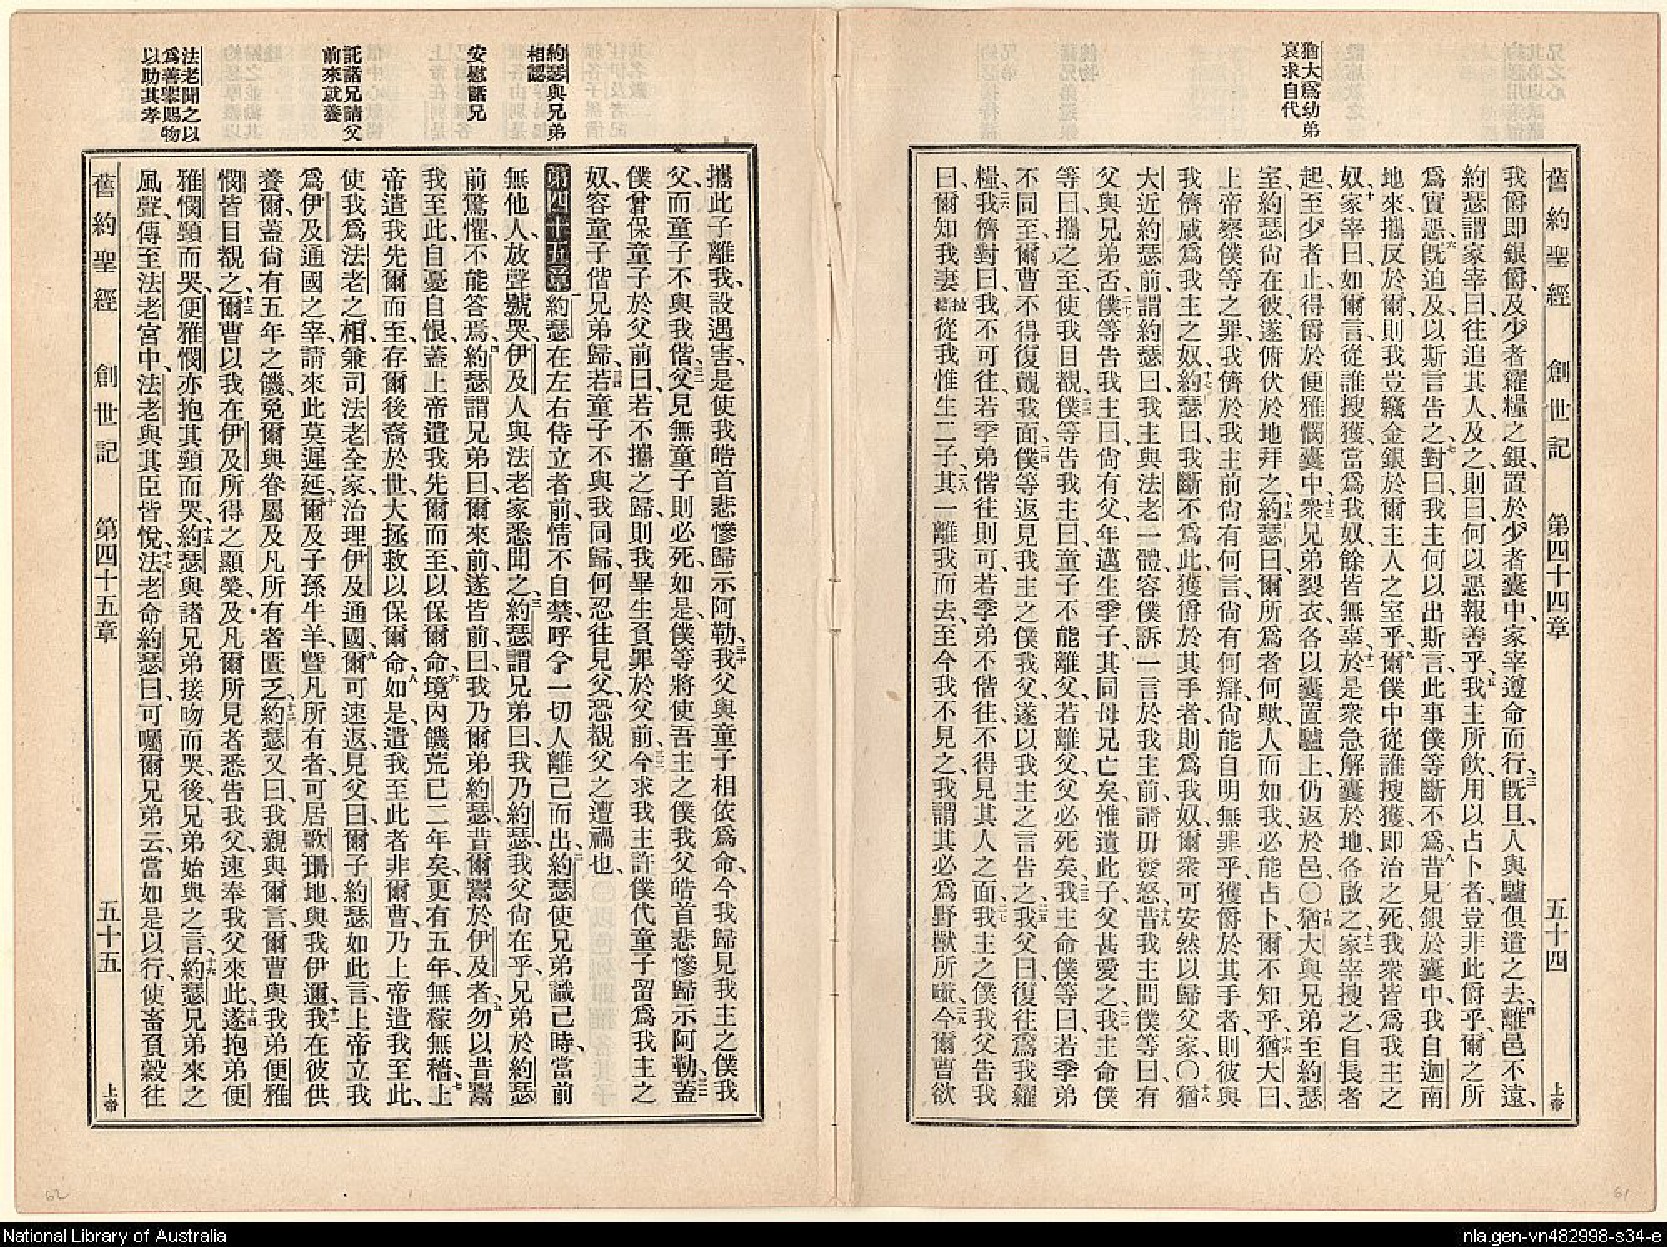 猶大爲幼弟
哀求自代
舊約聖經 創世記 第四十四章 五十四 上帝
我爵卽銀爵、及少者糴糧之銀、置於少者囊中、家宰遵命而行、三旣旦、人與驢俱遣之去、四離邑不遠、
約瑟謂家宰曰、往追其人、及之、則曰、何以惡報善乎、五我主所飲、用以占卜者、豈非此爵乎、爾之所
爲實惡、六旣追及、以斯言告之、七對曰、我主何以出斯言、此事僕等斷不爲、八昔見銀於囊中、我自迦南
地來、攜反於爾、則我豈竊金銀於爾主人之室乎、九爾僕中從誰搜獲、卽治之死、我衆皆爲我主之
奴、十家宰曰、如爾言、從誰搜獲、當爲我奴、餘皆無辜、十一於是衆急解囊於地、各啟之、十二家宰搜之、自長者
起、至少者止、得爵於便雅憫囊中、十三衆兄弟裂衣、各以囊置驢上、仍返於邑、〇十四猶大與兄弟至約瑟
室、約瑟尚在彼、遂俯伏於地拜之、十五約瑟曰、爾所爲者何歟、人而如我、必能占卜、爾不知乎、十六猶大曰、
上帝察僕等之罪、我儕於我主前、尚有何言、尚有何辯、尚能自明無罪乎、獲爵於其手者、則彼與
我儕咸爲我主之奴、十七約瑟曰、我斷不爲此、獲爵於其手者、則爲我奴、爾衆可安然以歸父家、〇十八猶
大近約瑟前、謂約瑟曰、我主與法老一體、容僕訴一言於我主前、請毋發怒、十九昔我主問僕等曰、有
父與兄弟否、二十僕等告我主曰、尚有父、年邁生季子、其同母兄亡矣、惟遺此子、父甚愛之、二一我主命僕
等曰、攜之至、使我目覩、二二僕等告我主曰、童子不能離父、若離父、父必死矣、二三我主命僕等曰、若季弟
不同至、爾曹不得復覿我面、二四僕等返見我主之僕我父、遂以我主之言告之、二五我父曰、復往爲我糴
糧、二六我儕對曰、我不可往、若季弟偕往則可、若季弟不偕往、不得見其人之面、二七我主之僕我父告我
曰、爾知我妻拉結從我、惟生二子、二八其一離我而去、至今我不見之、我謂其必爲野獸所噬、二九今爾曹欲
約瑟與兄弟
相認
安慰諸兄
託諸兄請父
前來就養
法老聞之以
爲善舉賜物
以助其孝
攜此子離我、設遇害、是使我皓首悲慘歸示阿勒、三十我父與童子相依爲命、今我歸見我主之僕我
父、而童子不與我偕、三一父見無童子、則必死、如是、僕等將使吾主之僕我父、皓首悲慘歸示阿勒、三二蓋
僕曾保童子於父前曰、若不攜之歸、則我畢生負罪於父前、三三今求我主許僕代童子留爲我主之
奴、容童子偕兄弟歸、三四若童子不與我同歸、何忍往見父、恐覩父之遭禍也、
第四十五章 一約瑟在左右侍立者前、情不自禁、呼令一切人離己而出、二約瑟使兄弟識己時、當前
無他人、放聲號哭、伊及人與法老家悉聞之、三約瑟謂兄弟曰、我乃約瑟、我父尚在乎、兄弟於約瑟
前驚懼、不能答焉、四約瑟謂兄弟曰、爾來前、遂皆前、曰、我乃爾弟約瑟、昔爾鬻於伊及者、五勿以昔鬻
我至此自憂自恨、蓋上帝遣我先爾而至、以保爾命、六境內饑荒已二年矣、更有五年、無稼無穡、七上
帝遣我先爾而至、存爾後裔於世、大拯救以保爾命、八如是、遣我至此者、非爾曹、乃上帝遣我至此、
使我爲法老之相、兼司法老全家、治理伊及通國、九爾可速返見父曰、爾子約瑟如此言、上帝立我
爲伊及通國之宰、請來此莫遲延、十爾及子孫、牛羊、曁凡所有者、可居歌珊地、與我伊邇、十一我在彼供
養爾、蓋尚有五年之饑、免爾與眷屬及凡所有者匱乏、十二約瑟又曰、我親與爾言、爾曹與我弟便雅
憫、皆目覩之、十三爾曹以我在伊及所得之顯榮、及凡爾所見者、悉告我父、速奉我父來此、十四遂抱弟便
雅憫頸而哭、便雅憫亦抱其頸而哭、十五約瑟與諸兄弟接吻而哭、後兄弟始與之言、十六約瑟兄弟來之
風聲、傳至法老宮中、法老與其臣皆悅、十七法老命約瑟曰、可囑爾兄弟云、當如是以行、使畜負穀往
舊約聖經 創世記 第四十五章 五十五 上帝
62
61
National Library of Australia
nla.gen-vn482998-s34-e